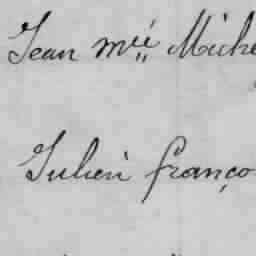 Jean mie Miche
Julien franço